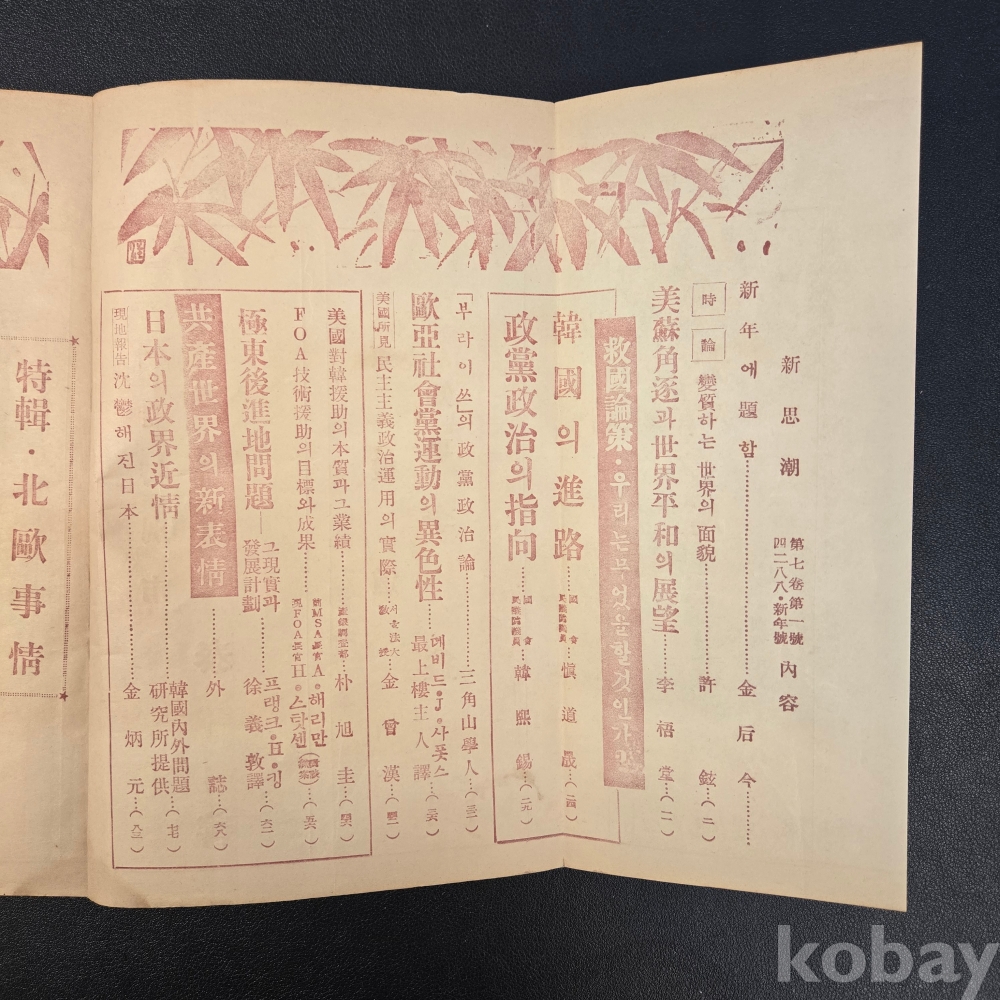 新思潮 第七卷第一號 四二八八・新年號 內容
新年에題함………金后今……
時論 變質하는世界의面貌………許鉉…(二)
美蘇角逐과世界平和의展望………李梧堂…(一一)
救國論策・우리는무엇을할것인가
韓國의進路………國會民議院議員 愼道晟…(二四)
政黨政治의指向………國會民議院議員 韓熙錫…(二九)
「부라이쓰」의政黨政治論………三角山學人…(三二)
歐亞社會黨運動의異色性………데비드・J・사폿스 最上樓主人譯…(三六)
美國所見 民主主義政治運用의實際………서울法大敎授 金曾漢…(四一)
美國對韓援助의本質과그業績………朴旭圭…(四六)
FOA技術援助의目標와成果………前MSA長官A・해리만 現FOA長官H・스탓센…(五六)
極東後進地問題―그現實과發展計劃………프랭크・H・킹 徐義敦譯…(六二)
共產世界의新表情………外誌…(六八)
日本의政界近情………韓國內外問題硏究所提供…(七七)
現地報告 沈鬱해진日本………金炳元…(八三)
特輯・北歐事情
kobay